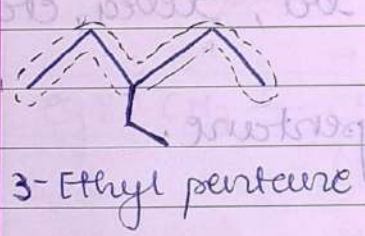 3-Ethyl pentane